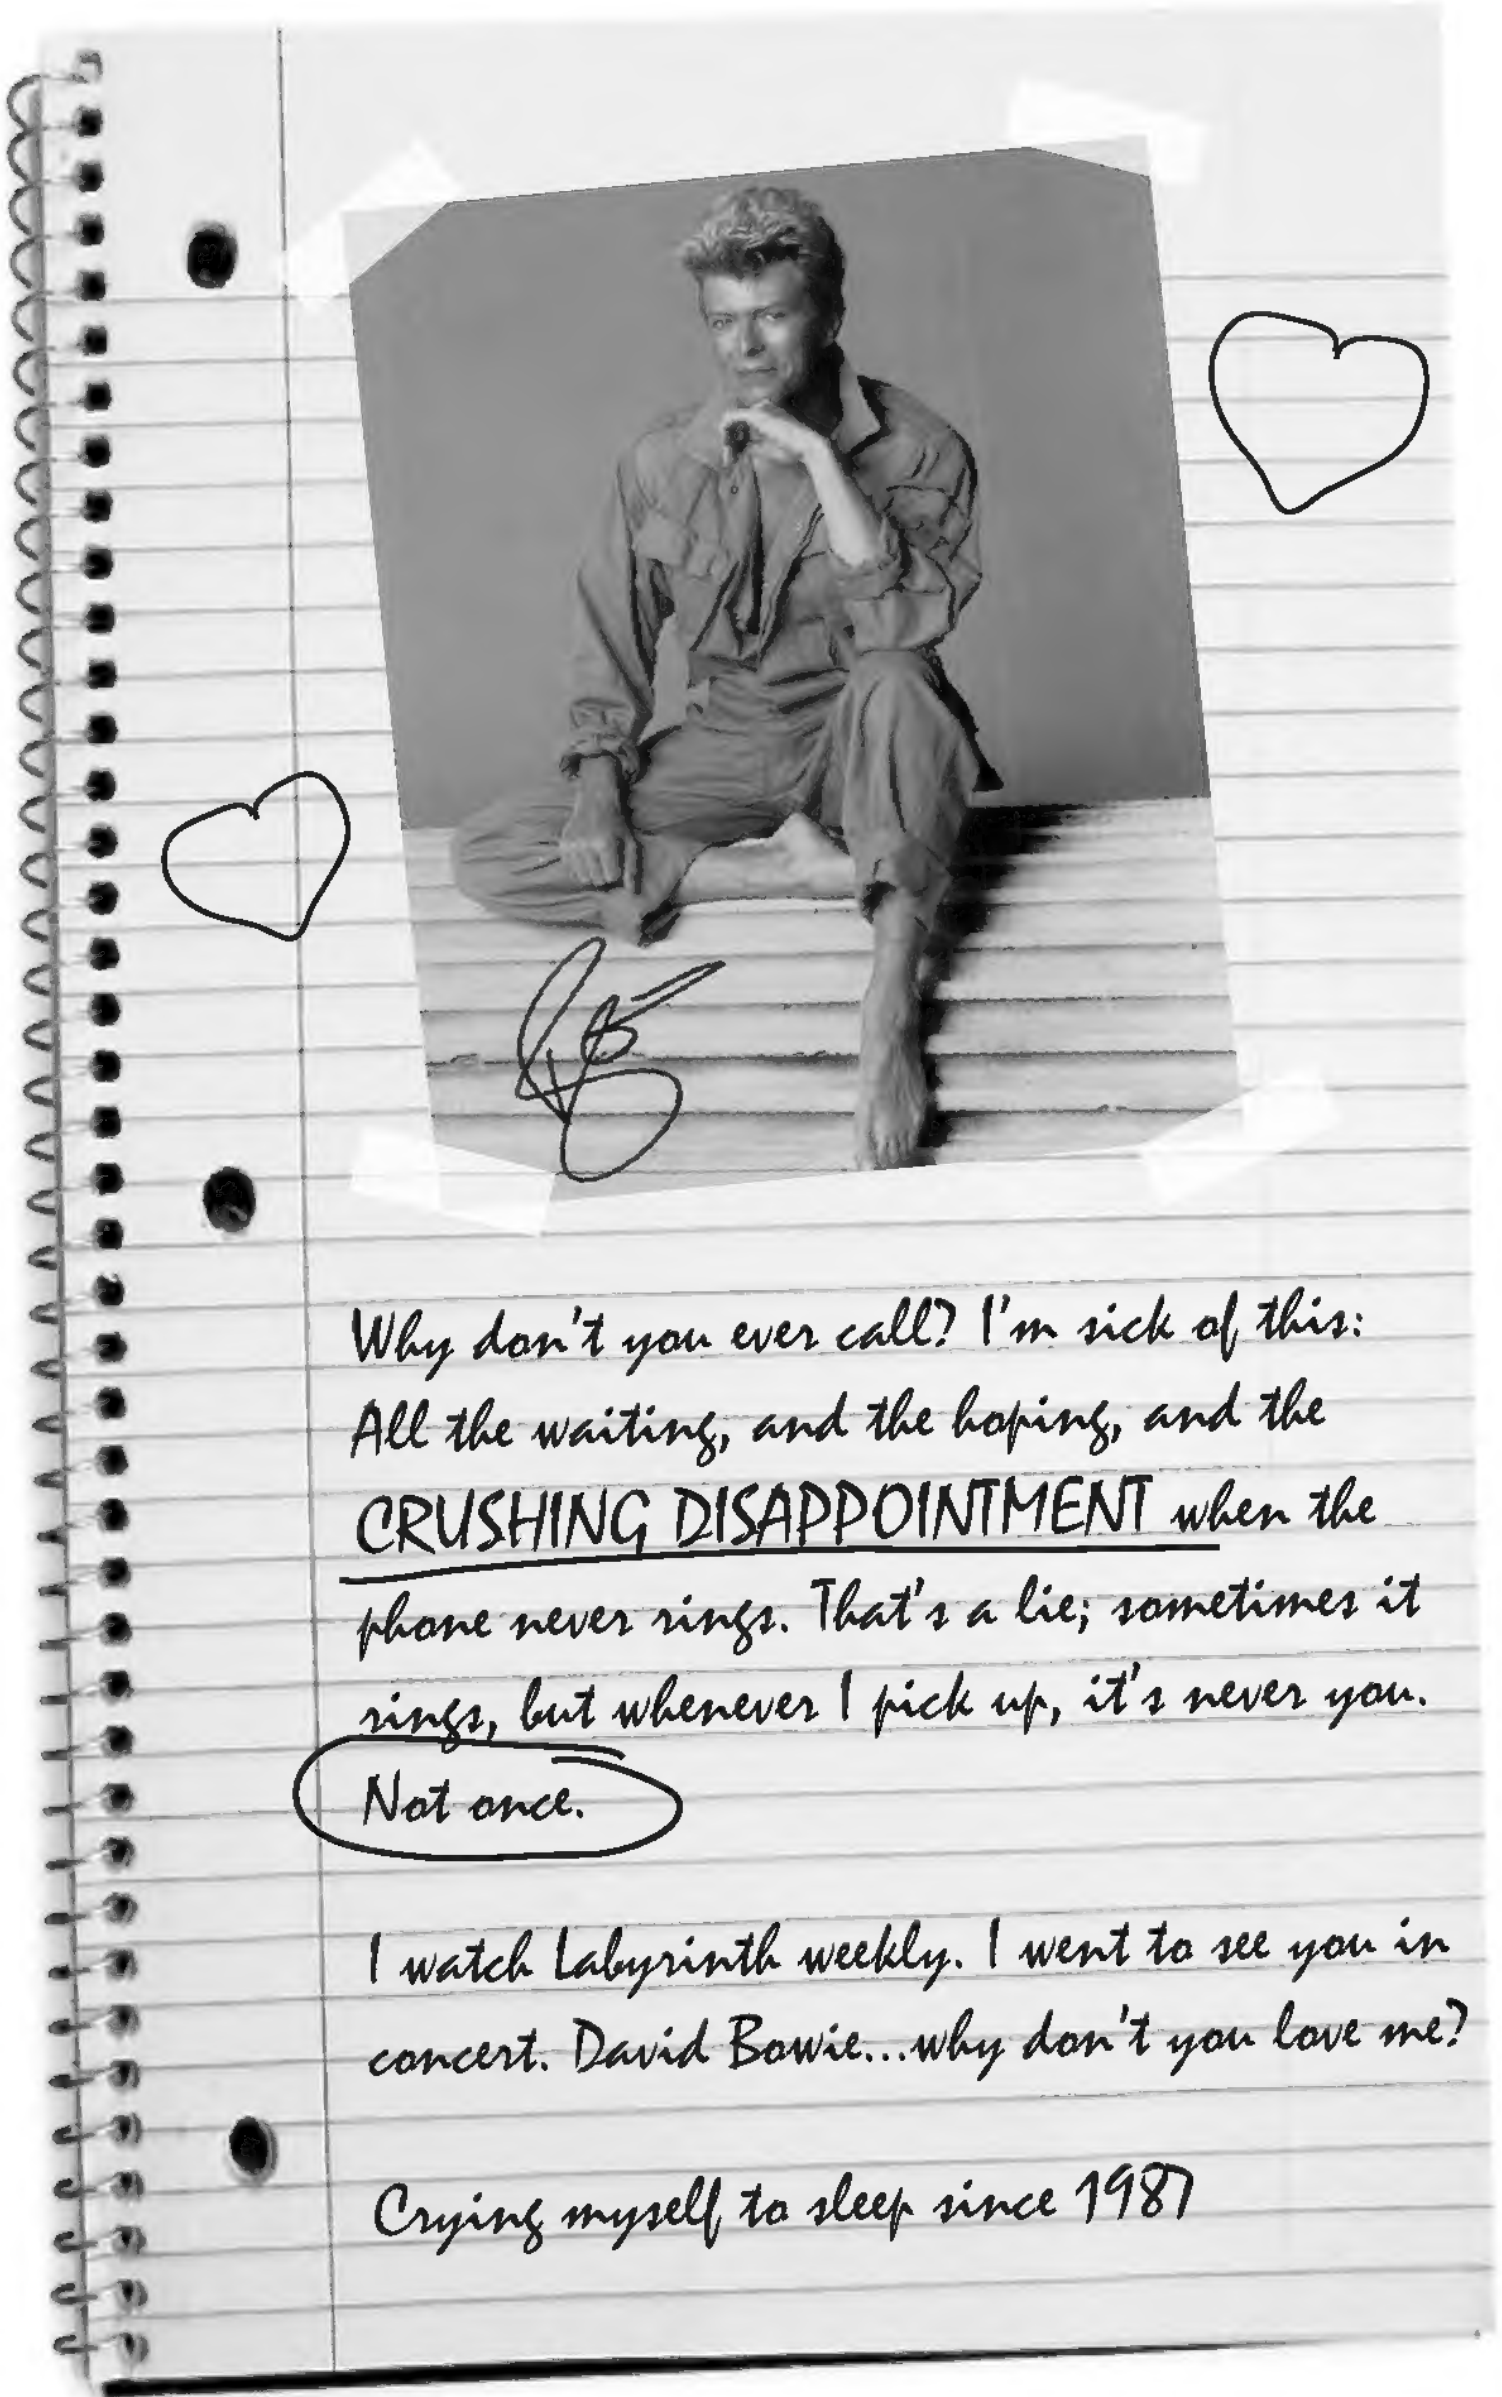 Why don't you ever call? I'm sick of this:
All the waiting, and the hoping, and the
CRUSHING DISAPPOINTMENT when the
phone never rings. That's a lie; sometimes it
rings, but whenever I pick up, it's never you.
Not once.
I watch Labyrinth weekly. I went to see you in
concert. David Bowie...why don't you love me?
Crying myself to sleep since 1987